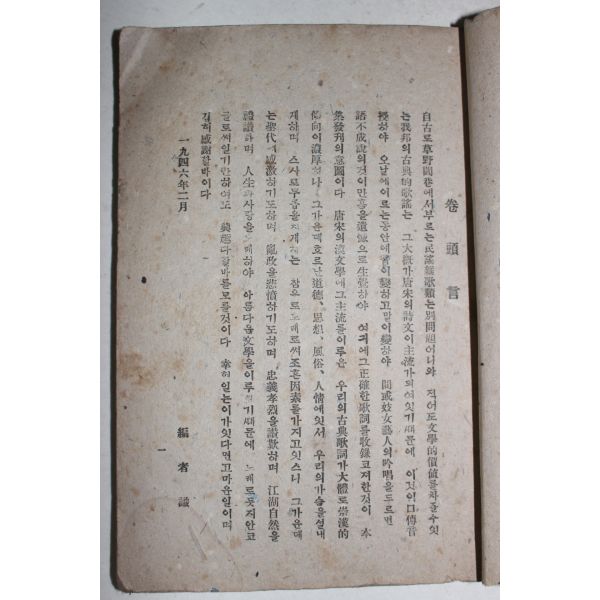 卷頭言
自古로草野閭巷에서부르는民謠雜歌類는別問題어니와 적어도文學的價値를차즐수잇
는我邦의古典的歌謠는 그大槪가唐宋의詩文이主流가되여잇기때문에 이것이口傳言
하야 오날에이르는공안에 이變하고말이變하야 間或妓女藝人의吟唱을드르면
語不成說의것이만흠을遺憾으로生覺하야 여긔에그正確한歌詞를收錄코저한것이 本
集發刋의意圖이다 唐宋의漢文學에그主流를이루은 우리의古典歌詞가大體로崇漢的
傾向이濃厚허나 그가운데흐르난道德、思想、風俗、人情에잇서 우리의가슴을설내
게하며 스사로무릅을치게하는 참으로노래로써조흔因素를가지고잇스니 그가운데
는聖代에感激하기도하며 亂政을悲憤하기도하며 忠義孝烈을讚歎하며 江湖自然을
禮讚하며 人生과사랑을노래하야 아름다운文學을이루엇기때문에 노래로듯지안코
글로써일기만하여도 興趣다할바를모를것이다 幸혀일는이가잇다면고마운일이며
깁히感謝할바이다
一九四六年二月
編者識
一